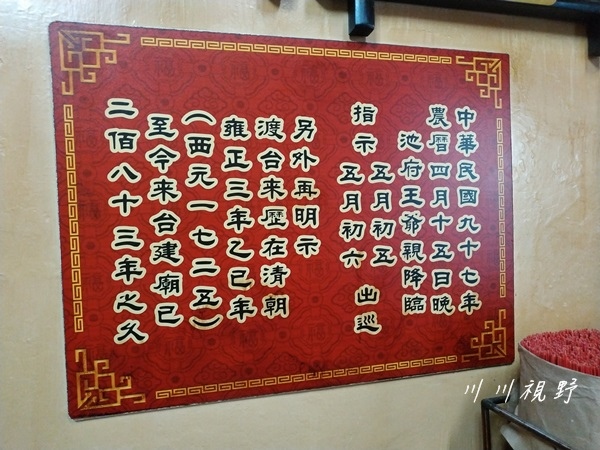 中華民國九十七年
農曆四月十五日晚
池府王爺親降臨
指示 五月初五
五月初六 出巡
另外再明示
渡台來歷在清朝
雍正三年乙巳年
(西元一七二五)
至今來台建廟已
二佰八十三年之久
川川視野